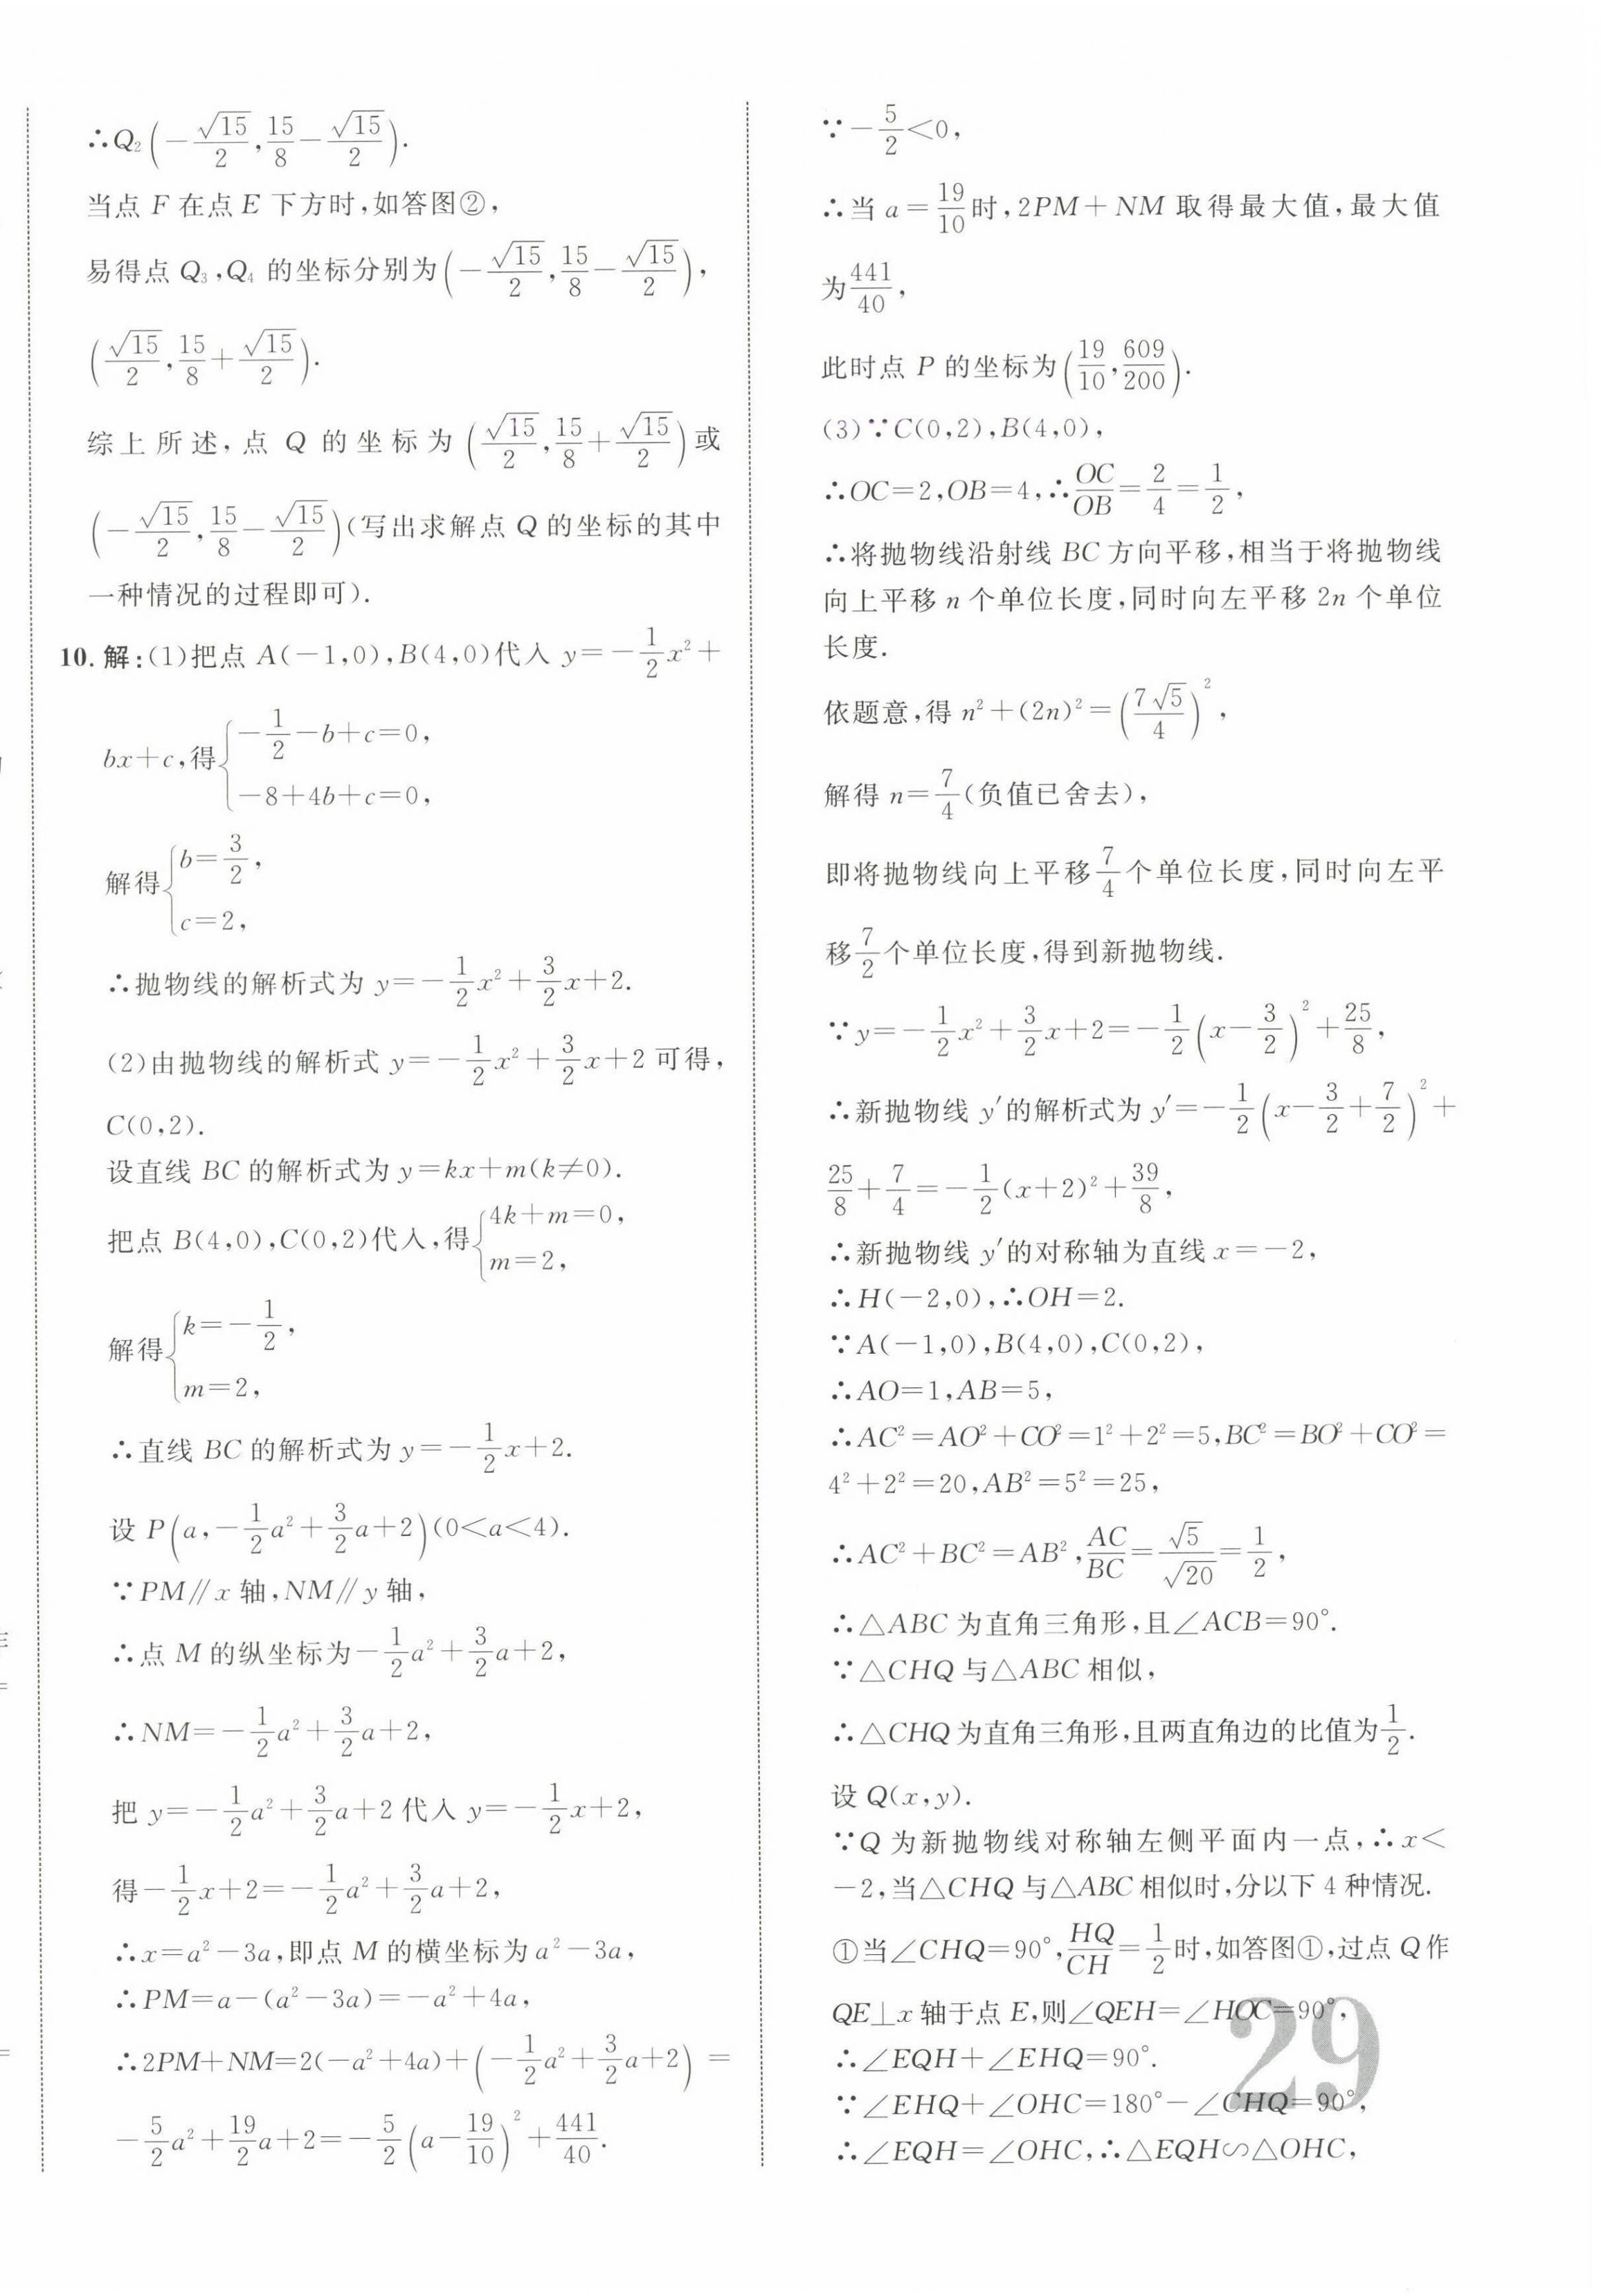 ∴Q₂(-√15/2, 15/8-√15/2).
当点 F 在点 E 下方时,如答图②,
易得点 Q₃,Q₄ 的坐标分别为(-√15/2, 15/8-√15/2),
(√15/2, 15/8+√15/2).
综上所述,点 Q 的坐标为(√15/2, 15/8+√15/2)或
(-√15/2, 15/8-√15/2)(写出求解点 Q 的坐标的其中
一种情况的过程即可).
10. 解:(1)把点 A(-1,0),B(4,0)代入 y=-1/2x²+
bx+c,得{-1/2-b+c=0,
-8+4b+c=0,
解得{b=3/2,
c=2,
∴抛物线的解析式为 y=-1/2x²+3/2x+2.
(2)由抛物线的解析式 y=-1/2x²+3/2x+2 可得,
C(0,2).
设直线 BC 的解析式为 y=kx+m(k≠0).
把点 B(4,0),C(0,2)代入,得{4k+m=0,
m=2,
解得{k=-1/2,
m=2,
∴直线 BC 的解析式为 y=-1/2x+2.
设 P(a,-1/2a²+3/2a+2)(0<a<4).
∵PM∥x 轴,NM∥y 轴,
∴点 M 的纵坐标为-1/2a²+3/2a+2,
∴NM=-1/2a²+3/2a+2,
把 y=-1/2a²+3/2a+2 代入 y=-1/2x+2,
得-1/2x+2=-1/2a²+3/2a+2,
∴x=a²-3a,即点 M 的横坐标为 a²-3a,
∴PM=a-(a²-3a)=-a²+4a,
∴2PM+NM=2(-a²+4a)+(-1/2a²+3/2a+2)=
-5/2a²+19/2a+2=-5/2(a-19/10)²+441/40.
∵-5/2<0,
∴当 a=19/10时,2PM+NM 取得最大值,最大值
为441/40,
此时点 P 的坐标为(19/10, 609/200).
(3)∵C(0,2),B(4,0),
∴OC=2,OB=4,∴OC/OB=2/4=1/2,
∴将抛物线沿射线 BC 方向平移,相当于将抛物线
向上平移 n 个单位长度,同时向左平移 2n 个单位
长度.
依题意,得 n²+(2n)²=(7√5/4)²,
解得 n=7/4(负值已舍去),
即将抛物线向上平移7/4个单位长度,同时向左平
移7/2个单位长度,得到新抛物线.
∵y=-1/2x²+3/2x+2=-1/2(x-3/2)²+25/8,
∴新抛物线 y′的解析式为 y′=-1/2(x-3/2+7/2)²+
25/8+7/4=-1/2(x+2)²+39/8,
∴新抛物线 y′的对称轴为直线 x=-2,
∴H(-2,0),∴OH=2.
∵A(-1,0),B(4,0),C(0,2),
∴AO=1,AB=5,
∴AC²=AO²+CO²=1²+2²=5,BC²=BO²+CO²=
4²+2²=20,AB²=5²=25,
∴AC²+BC²=AB²,AC/BC=√5/√20=1/2,
∴△ABC 为直角三角形,且∠ACB=90°.
∵△CHQ 与△ABC 相似,
∴△CHQ 为直角三角形,且两直角边的比值为1/2.
设 Q(x,y).
∵Q 为新抛物线对称轴左侧平面内一点,∴x<
-2,当△CHQ 与△ABC 相似时,分以下 4 种情况.
①当∠CHQ=90°,HQ/CH=1/2时,如答图①,过点 Q 作
QE⊥x 轴于点 E,则∠QEH=∠HOC=90°,
∴∠EQH+∠EHQ=90°.
∵∠EHQ+∠OHC=180°-∠CHQ=90°,
∴∠EQH=∠OHC,∴△EQH∽△OHC,
29